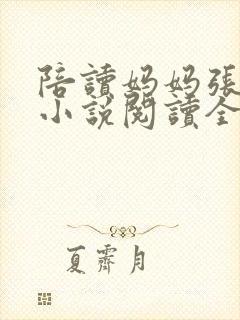 陪讀妈妈張
小說閱讀全
夏霽月